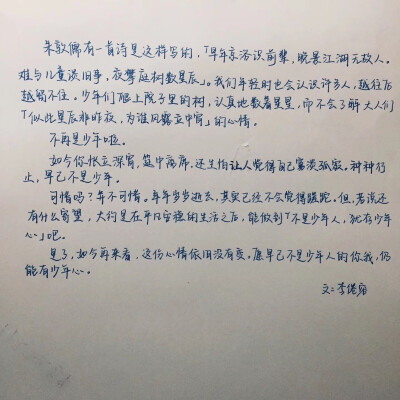 朱敦儒有一首诗是这样写的,「早年京洛识前辈,晚景江湖无故人。
难与儿童谈旧事,夜攀庭树数星辰」。我们年轻时也会认识许多人,越往后
越留不住。少年们爬上院子里的树,认真地数着星星,而不会了解大人们
「似此星辰非昨夜,为谁风露立中宵」的心情。
不再是少年啦。
如今你怅立深宵,筵中离席,还生怕让人觉得自己寡淡孤寂。种种行
止,早已不是少年。
可惜吗?并不可惜。年年岁岁逝去,其实已经不会觉得尴尬。但,若说还
有什么宥望,大约是在平凡安稳的生活之后,能做到「不是少年人,犹有少年
心」吧。
是了,如今再来看,这份心情依旧没有变。愿早已不是少年人的你我,仍
能有少年心。
文:李